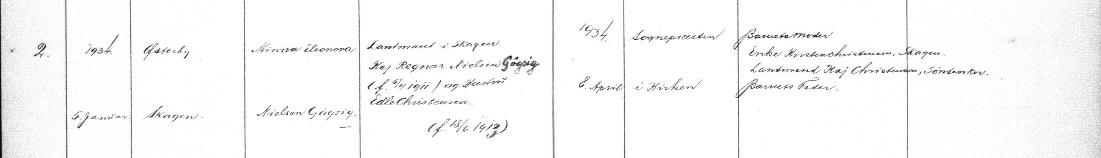 2.
1934.
5. Januar
Østerby
Skagen.
Ninna Eleonora
Nielsen Gøgsig.
Landmand i Skagen
Kaj Regnar Nielsen Gøgsig
(f. 1911) og Hustru
Edle Christensen.
(f. 18/6 1912)
1934.
8. April
Sognepræsten
i Kirken
Barnets Moder
Enke Kirsten Christensen, Skagen.
Landmand Kaj Christensen,
Barnets Fader.